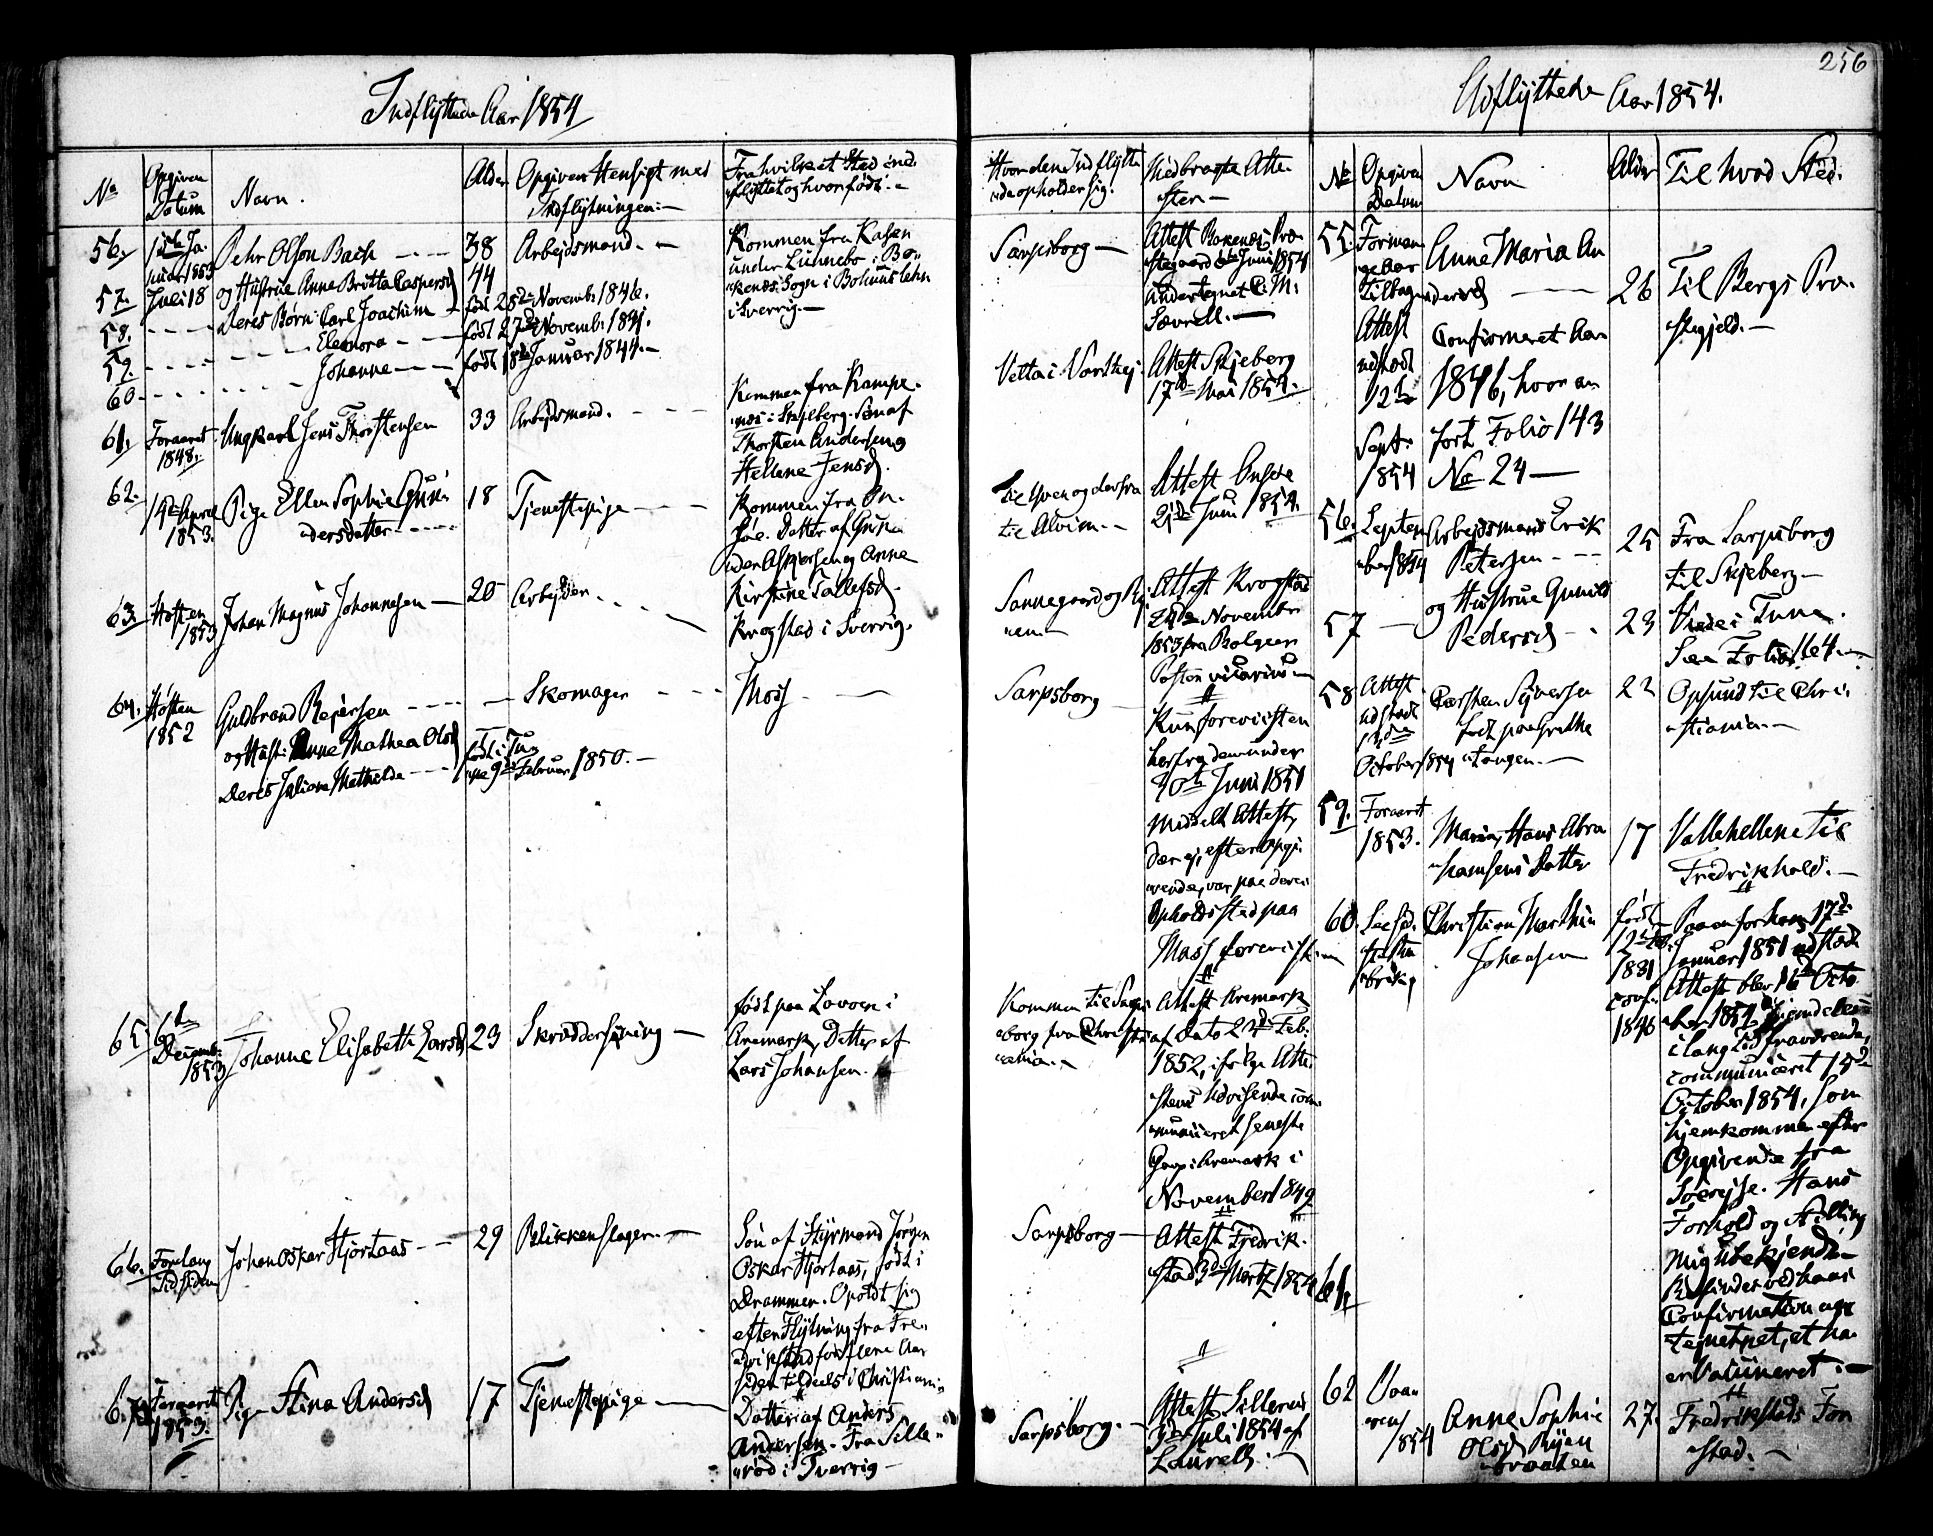 256
Indflyttede Aar 1854
No
Opgiven Datum
Navn.
Alder
Opgiven Hensigt med Indflytningen.
Fra hvilket Sted indflyttet og hvor født.
Hvor den Indflyttede opholder sig.
Medbragte Attester
56.
Januar 1853
Pehr Olson Bach
38
Arbejdsmand.
Kommen fra
under Lunnebo i Bo-
kenæs Sogn i Bohuus Lehn
i Sverrig.
Sarpsborg
Attest Bokenæs Præ-
stegaard Juni 1854
57.
Juli 18
og Hustrue Anna Britta Caspersd
44
58.
Deres Børn: Carl Joachim
født 25de Novemb: 1846.
59.
Eleonora
født 27de Novemb: 1841.
60
Johanne
født 18de Januar 1844.
61.
Foraaret 1848.
Ungkarl Jens Thorstensen
33
Arbejdsmand.
Kommen fra Kampe-
næs i Skjeberg. Søn af
Thorsten Andersen og
Hellene Jensd.
Vetta i Varteig
Attest Skjeberg
17de Mai 1854.
62.
14de April 1853.
Pige Ellen Sophie Gun-
dersdatter
18
Tjenestepige
Kommen fra On-
søe. Datter af Gun-
der Aspersen og Anne
Kirstine Tollefsd.
til Yven og derfra
til Alvim.
Attest Onsøe
21de Juni 1854.
63.
Høsten 1853
Johan Magnus Johannesen
20
Arbejder
Krogstad i Sverrig.
Sannegaard og
Attest Krogstad
24de November
1853 fra Bolgeen
Pastor vicarius
64.
Høsten 1852
Guldbrand Rejersen
Skomager
Moss
Sarpsborg
Kun foreviist en
herfra dem under
30te Juni 1851
meddelt Attest,
der ej, efter Opgi-
vende, var paa deres
Opholdssted paa
Moss forevist
og Hust: Anne Mathea Olsd
Deres Juliane Mathilde
født i Tu-
ne 9de Februar 1850.
65
6te Decemb: 1853
Johanne Elisabeth Larsd
23
Skræddersyning
født paa Lovøen i
Aremark, Datter af
Lars Johansen.
Kommen til Sarps-
borg fra Christi-
ania.
Attest Aremark
af Dato 22de Feb:
1852, ifølge Atte-
stens Udvisende com-
municeret seneste
Gang i Aremark i
November 1849
66.
Forelang Tid siden
Johan Oskar Hjortaas
29
Blikkenslager
Søn af Styrmand Jørgen
Oskar Hjortaas, født i
Drammen. Opoldt sig
efter Flytning fra Fre-
drikstad for flere Aar
siden tildeels i Christiania
Sarpsborg
Attest Fredrik-
stad 3de Martz 1854
67
Foraaret 1853.
Pige Stina Andersd
17
Tjenestepige
Datter af Anders
Andersen. Fra Sille-
rød i Sverrig
Sarpsborg.
Attest Sillerud
3de Juli 1854 af
Laurell.
Udflyttede Aar 1854.
No
Opgiven Datum
Navn
Alder
Til hvad Sted.
55
Tilbage
Attest
udstædt
12te
Sept.
1854
Anne Maria An
dersd
Confirmeret Aar
1846, hvor an
fört Folio 143
No 24
26
Til Bergs Præ-
stegjeld.
56.
September 1854
Arbejdsmand Erik
Petersen
25
Fra Sarpsborg
til Skjeberg
57
og Hustrue Gunild
Pedersd
23
Viede i Tune.
See Folio 164
58
Attest
udstædt
October 1854
Carsten Sejversen
født paa
Tangen.
22
Opsund til Chri-
stiania.
59.
Foraaret 1853.
Maria, Hans Abra-
hamsens Datter
17
Vallehellene til
Fredrikshald.
60.
Christian Marthin
Johansen
født
1831
conf:
1846
Paa en for ham 17de
Januar 1851 udstædt
Attest blev 16de Octo-
ber 1854
i lang Tid fraværende,
communiceret 15de
October 1854, som
hjemkommen efter
Opgivende fra
Søereise. Hans
Forhold og Stilling
mig ubekjendt
Befindes ved hans
Confirmation
tegnet, at ha
er Vaccineret.
61.
62
Vaaren 1854
Anne Sophie
Olsd Ryen
braaten
27.
Fredrikstads For-
stad.